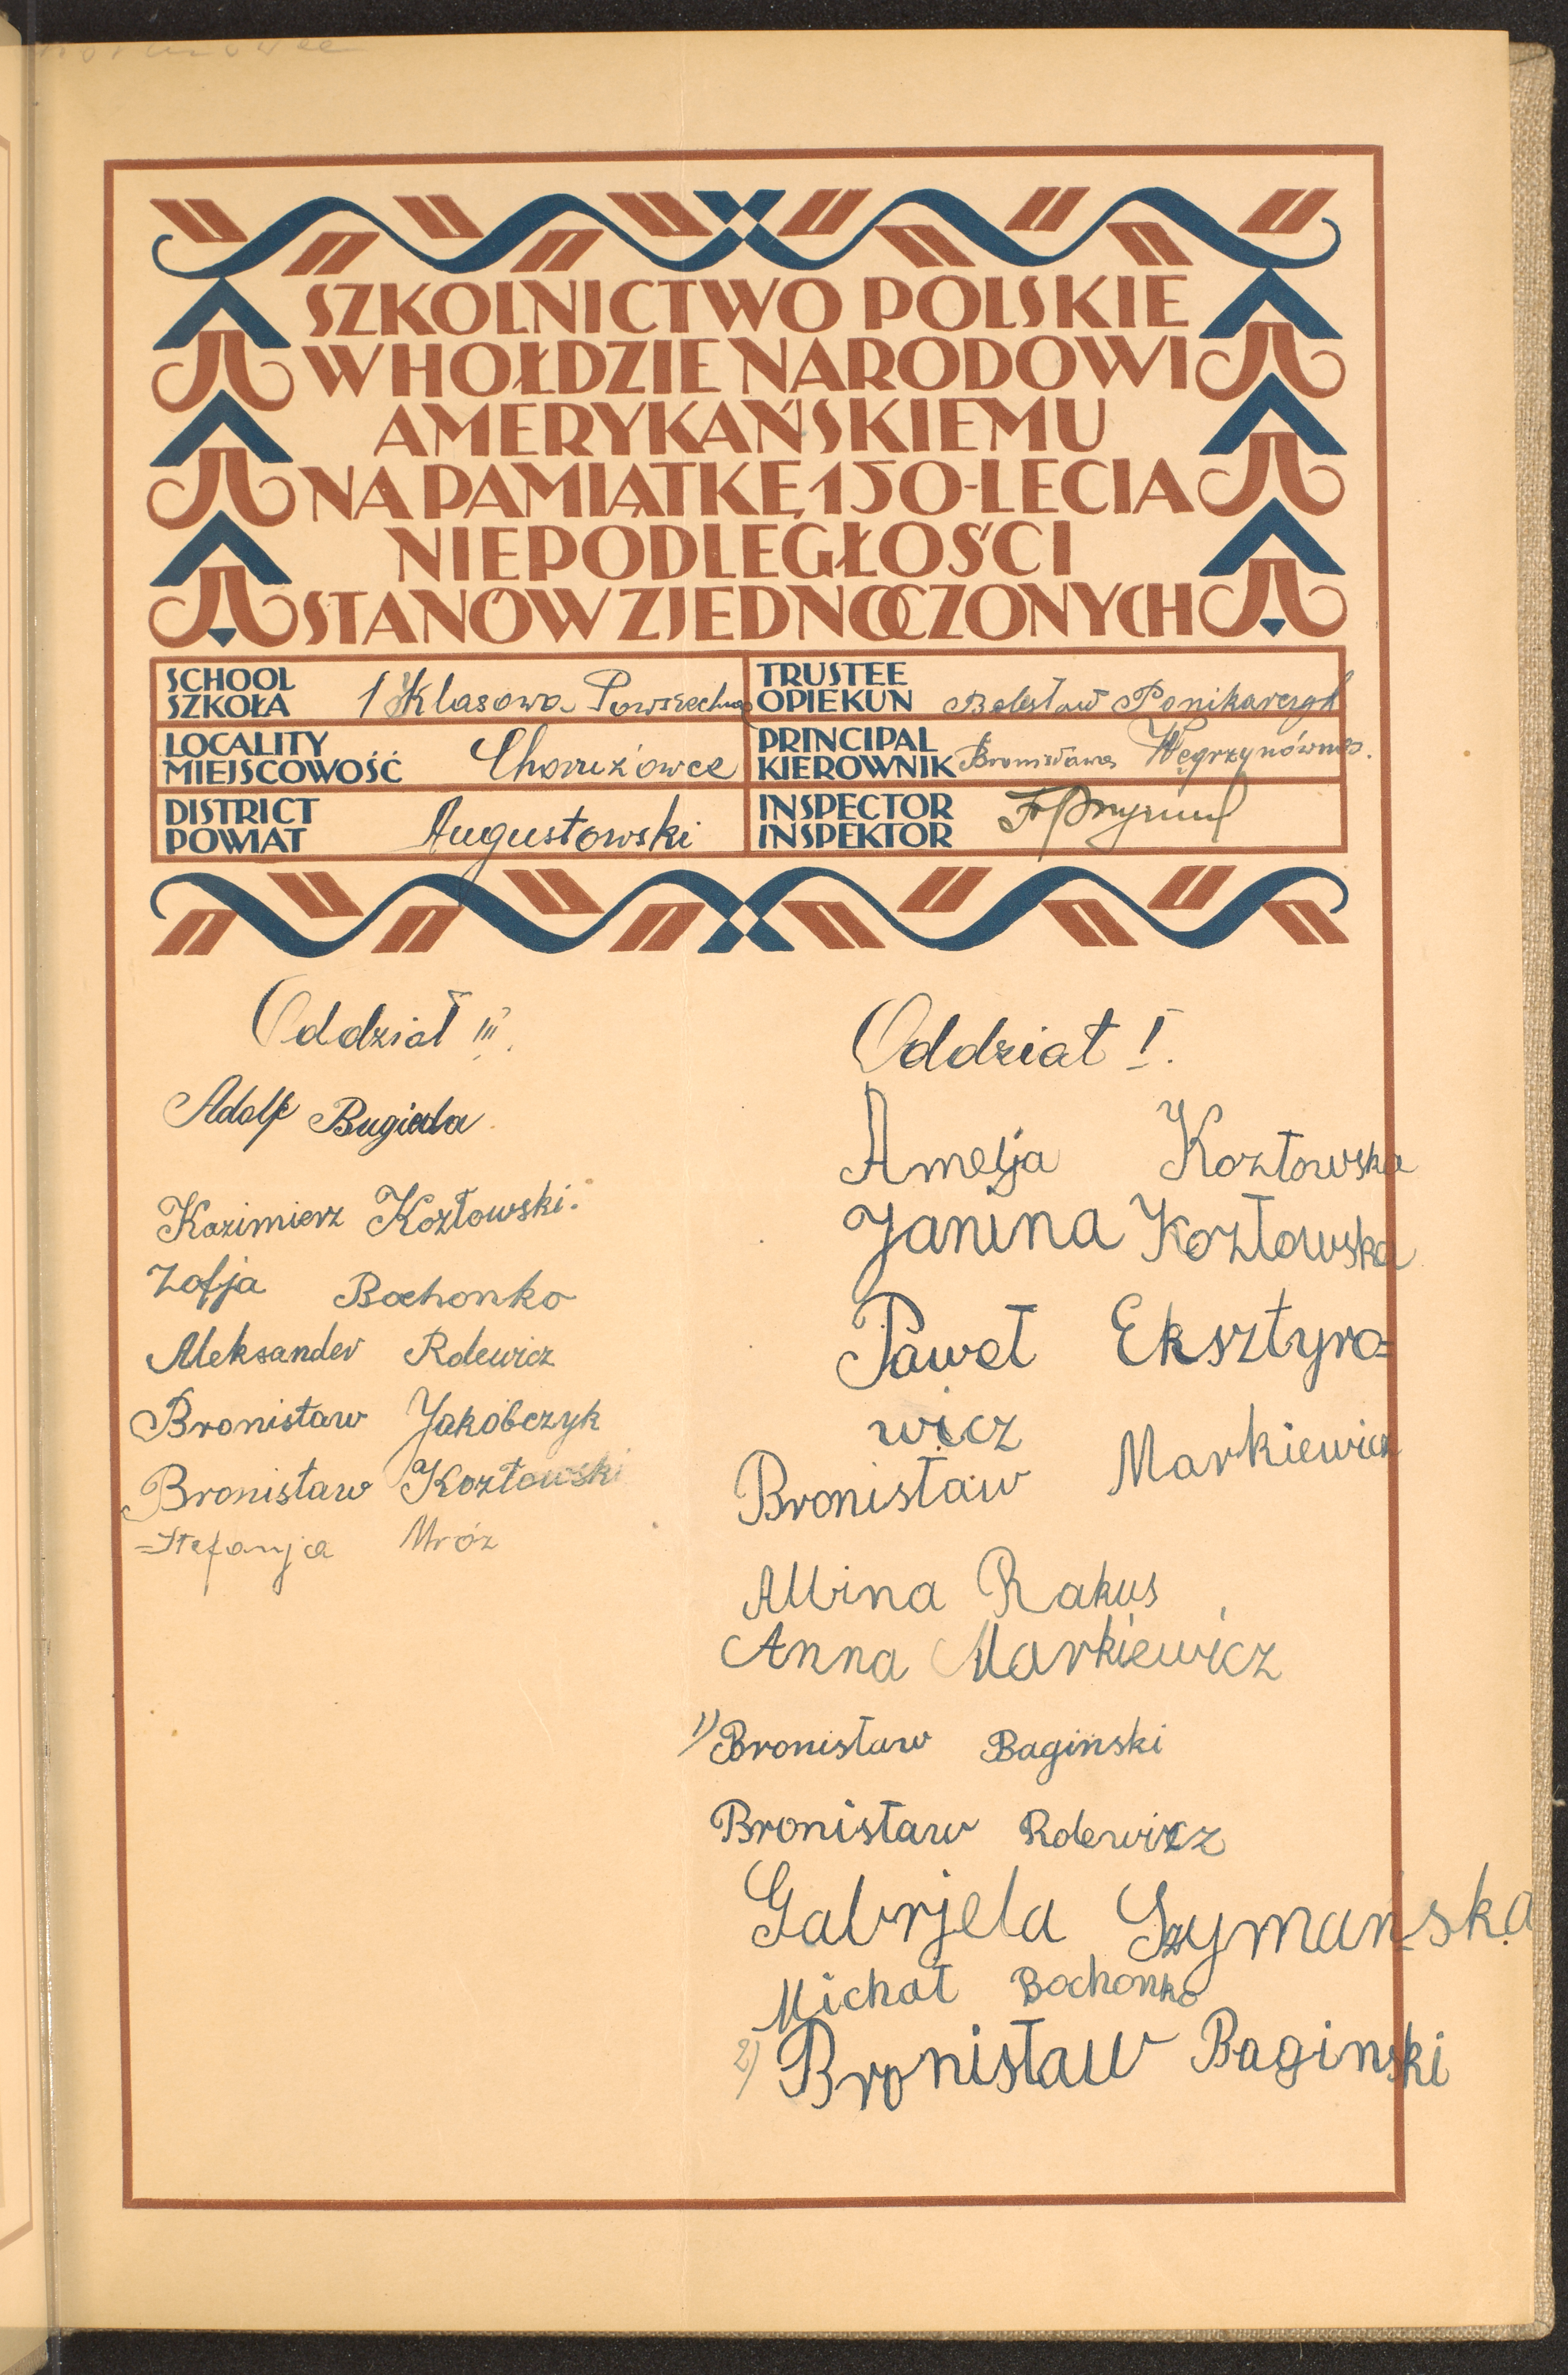 SZKOLNICTWO POLSKIE
W HOŁDZIE NARODOWI
AMERYKAŃSKIEMU
NA PAMIĄTKĘ 150-LECIA
NIEPODLEGŁOŚCI
STANÓW ZJEDNOCZONYCH
SCHOOL
SZKOŁA 1 Klasowa Powszechna
TRUSTEE
OPIEKUN Bolesław Ponikarczyk
LOCALITY
MIEJSCOWOŚĆ
PRINCIPAL
KIEROWNIK Bronisława Węgrzynówna.
DISTRICT
POWIAT Augustowski
INSPECTOR
INSPEKTOR
Oddział III.
Adolf Bugieda
Kazimierz Kozłowski.
Zofja Bochonko
Aleksander Rolewicz
Bronisław Jakóbczyk
Bronisław Kozłowski
Stefanja Mróz
Oddział I.
Amelja Kozłowska
Janina Kozłowska
Paweł Eksztyro=
wicz
Bronisław Markiewicz
Albina Rakus
Anna Markiewicz
1) Bronisław Bagiński
Bronisław Rolewicz
Gabrjela Szymańska
Michał Bochonko
2) Bronisław Baginski